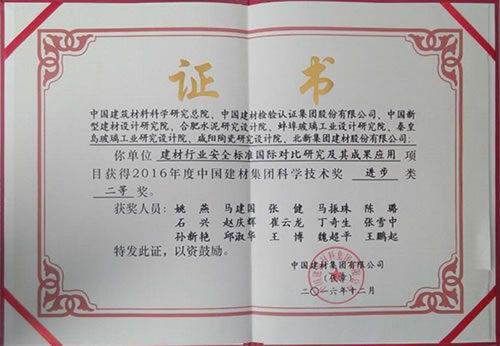 证书
中国建筑材料科学研究总院、中国建材检验认证集团股份有限公司、中国新
型建材设计研究院、合肥水泥研究设计院、蚌埠玻璃工业设计研究院、秦皇
岛玻璃工业研究设计院、咸阳陶瓷研究设计院、北新集团建材股份有限公司：
你单位 建材行业安全标准国际对比研究及其成果应用 项
目获得2016年度中国建材集团科学技术奖 进步 类
二等 奖。
获奖人员：姚燕 马建国 张健 马振珠 陈璐
石兴 赵庆辉 崔云龙 丁奇生 张雪中
孙新艳 邱淑华 王博 魏超平 王鹏起
特发此证，以资鼓励。
中国建材集团有限公司
（代章）
二〇一六年十二月